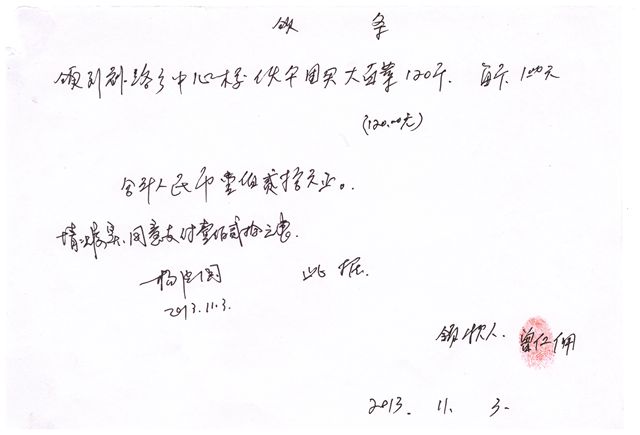 领 条
领到新路乡中心校伙食团买大白菜120斤. 每斤1.00元
(120.00元)
合计人民币壹佰贰拾元正。
情况属实.同意支付壹佰贰拾元
此据.
2013.11.3.
领款人. 曾仁
2013. 11. 3.